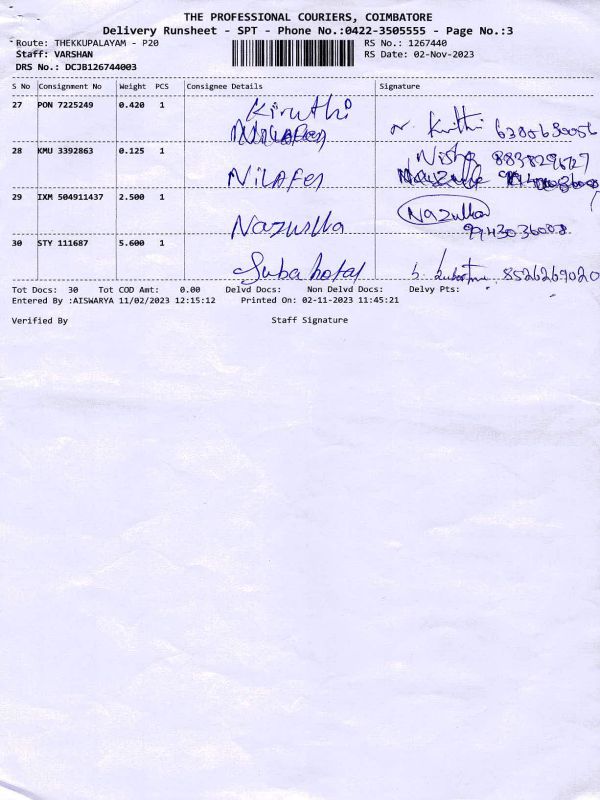 THE PROFESSIONAL COURIERS, COIMBATORE
Delivery Runsheet - SPT - Phone No.:0422-3505555 - Page No.:3
Route: THEKKUPALAYAM - P20 RS No.: 1267440
Staff: VARSHAN RS Date: 02-Nov-2023
DRS No.: DCJB126744003
S No Consignment No Weight PCS Consignee Details Signature
27 PON 7225249 0.420 1 Kiruthi
Kiruthi
28 KMU 3392863 0.125 1 Nisha
Nilafer
29 IXM 504911437 2.500 1 Nazulla
Nazulla 9943036008
30 STY 111687 5.600 1
Suba hotal 8526269020
Tot Docs: 30 Tot COD Amt: 0.00 Delvd Docs: Non Delvd Docs: Delvy Pts:
Entered By :AISWARYA 11/02/2023 12:15:12 Printed On: 02-11-2023 11:45:21
Verified By Staff Signature